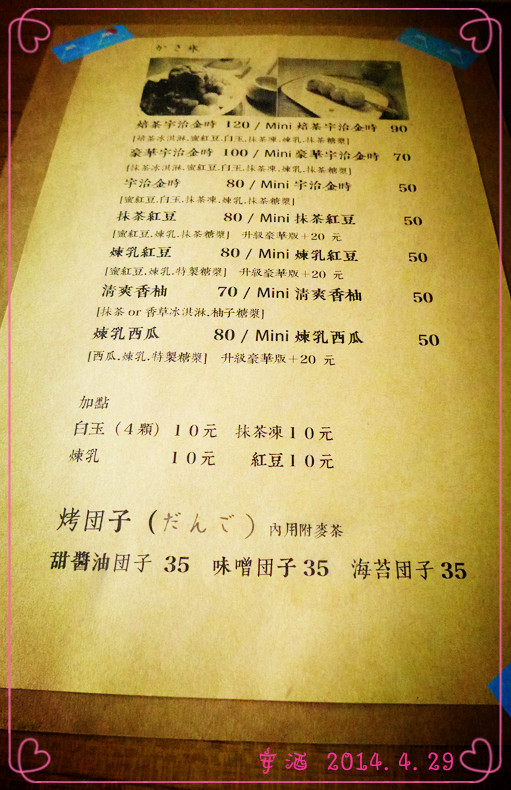 かき氷
焙茶宇治金時 120 / Mini 焙茶宇治金時 90
[焙茶冰淇淋.蜜紅豆.白玉.抹茶凍.煉乳.抹茶糖漿]
豪華宇治金時 100 / Mini 豪華宇治金時 70
[抹茶冰淇淋.蜜紅豆.白玉.抹茶凍.煉乳.抹茶糖漿]
宇治金時 80 / Mini 宇治金時 50
[蜜紅豆.白玉.抹茶凍.煉乳.抹茶糖漿]
抹茶紅豆 80 / Mini 抹茶紅豆 50
[蜜紅豆.煉乳.抹茶糖漿] 升級豪華版+20 元
煉乳紅豆 80 / Mini 煉乳紅豆 50
[蜜紅豆.煉乳.特製糖漿] 升級豪華版+20 元
清爽香柚 70 / Mini 清爽香柚 50
[抹茶 or 香草冰淇淋.柚子糖漿]
煉乳西瓜 80 / Mini 煉乳西瓜 50
[西瓜.煉乳.特製糖漿] 升級豪華版+20 元
加點
白玉（4顆）10元 抹茶凍10元
煉乳 10元 紅豆10元
烤団子（だんご）內用附麥茶
甜醬油団子 35 味噌団子 35 海苔団子 35
安酒 2014.4.29